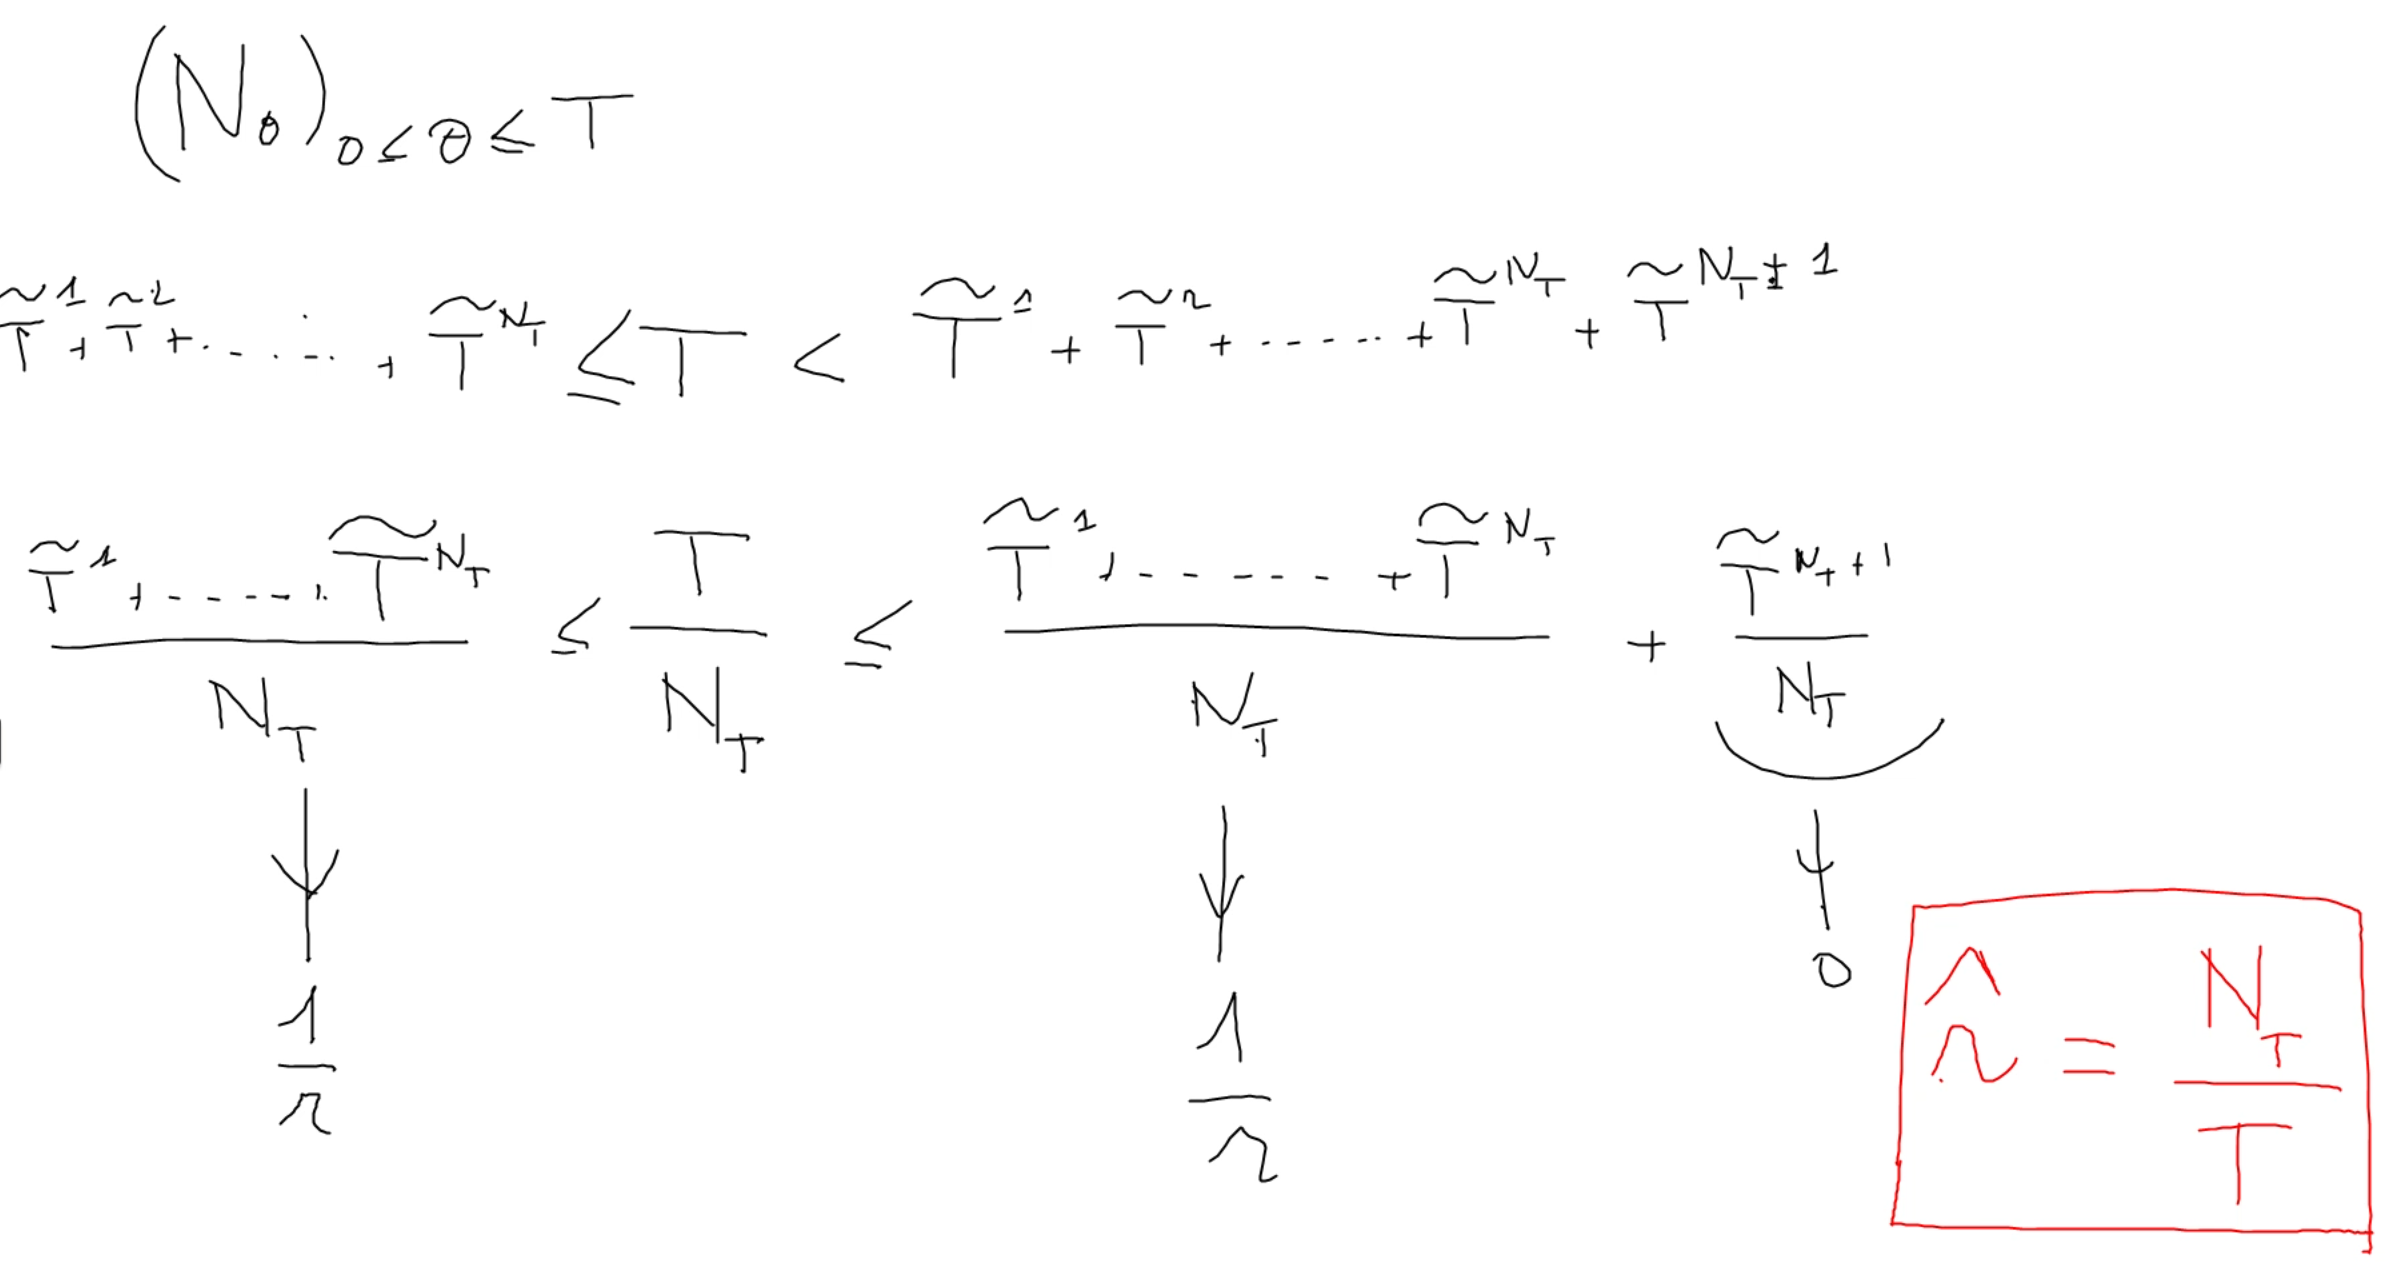 (N_θ)_{0≤θ≤T}
T̃^1 + T̃^2 + ...... + T̃^{N_T} ≤ T < T̃^1 + T̃^2 + ...... + T̃^{N_T} + T̃^{N_T+1}
(T̃^1 + ...... + T̃^{N_T}) / N_T ≤ T / N_T ≤ (T̃^1 + ...... + T̃^{N_T}) / N_T + T̃^{N_T+1} / N_T
↓ ↓ ↓
1/r 1/r 0
r̂ = N_T / T